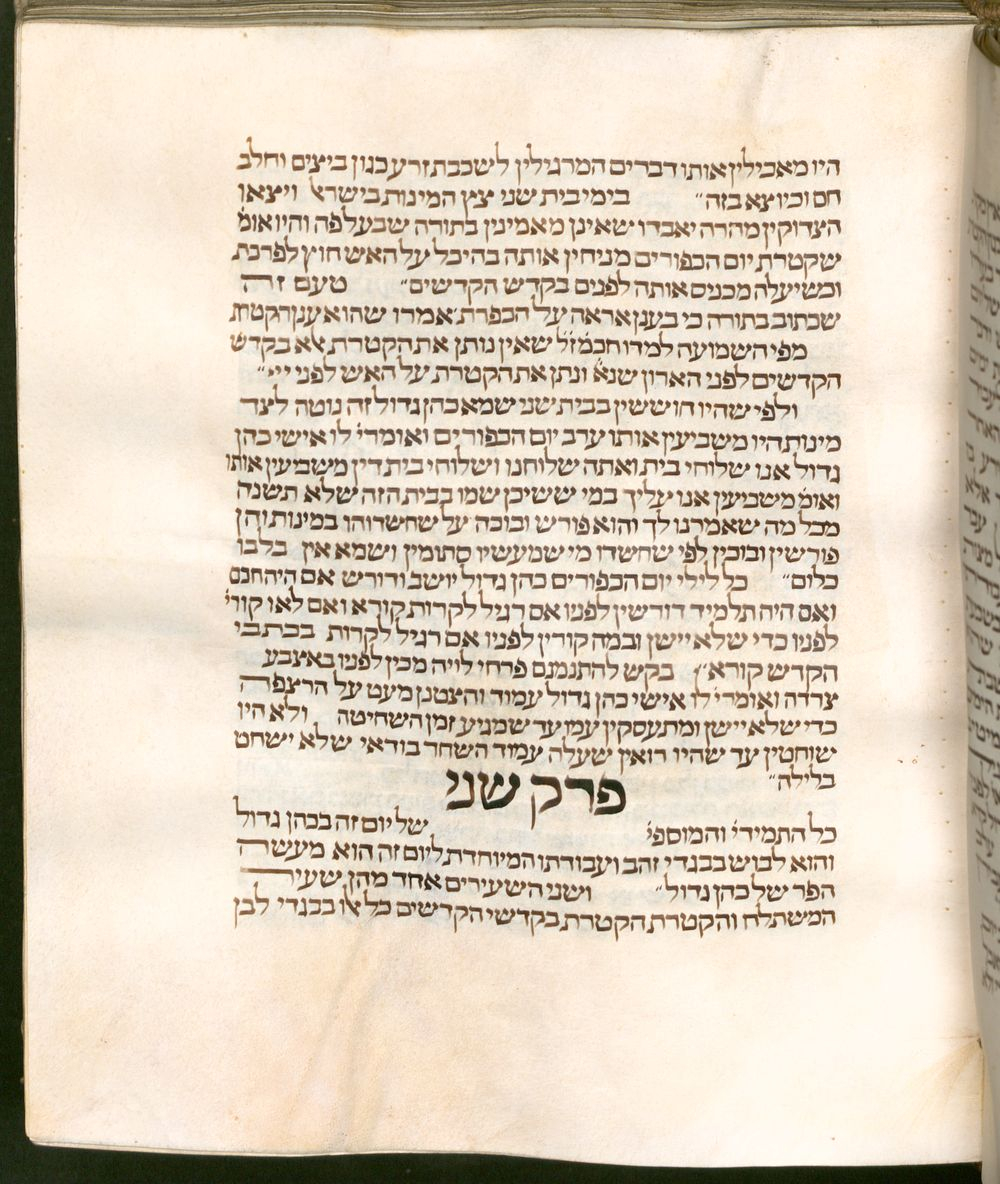 היו מאכילין אותו דברים המרגילין לשכבת זרע כגון ביצים וחלב
חם וכיוצא בזה״ בימי בית שני צץ המינות בישראל ויצאו
הצדוקין מהרה יאבדו שאינן מאמינין בתורה שבעל פה והיו אומ׳
שקטרת יום הכפורים מניחין אותה בהיכל על האש חוץ לפרכת
וכשיעלה מכניס אותה לפנים בקדש הקדשים״ טעם זה
שכתוב בתורה כי בענן אראה על הכפרת אמרו שהוא ענן הקטרת
מפי השמועה למדו חכמ׳ ז״ל שאין נותן את הקטרת אלא בקדש
הקדשים לפני הארון שנא׳ ונתן את הקטרת על האש לפני ייי״
ולפי שהיו חוששין בבית שני שמא כהן גדול זה נוטה לצד
מינות היו משביעין אותו ערב יום הכפורים ואומרי׳ לו אישי כהן
גדול אנו שלוחי בית ואתה שלוחנו ושלוחי בית דין משביעין אותו
ואומ׳ משביעין אנו עליך במי ששיכן שמו בבית הזה שלא תשנה
מכל מה שאמרנו לך והוא פורש ובוכה על שחשדוהו במינות והן
פורשין ובוכין לפי שחשדו מי שמעשיו סתומין ושמא אין בלבו
כלום״ כל לילי יום הכפורים כהן גדול יושב ודורש אם היה חכם
ואם היה תלמיד דורשין לפניו אם רגיל לקרות קורא ואם לאו קורי׳
לפניו כדי שלא יישן ובמה קורין לפניו אם רגיל לקרות בכתבי
הקדש קורא״ בקש להתנמנם פרחי לוייה מכין לפניו באצבע
צרדה ואומרי׳ לו אישי כהן גדול עמוד והצטנן מעט על הרצפה
כדי שלא יישן ומתעסקין עמו עד שמגיע זמן השחיטה ולא היו
שוחטין עד שהיו רואין שעלה עמוד השחר בודאי שלא ישחט
בלילה״
פרק שני
כל התמידי׳ והמוספי׳ של יום זה בכהן גדול
והוא לבוש בבגדי זהב ועבודתו המיוחדת ליום זה הוא מעשה
הפר של כהן גדול״ ושני השעירים אחד מהן שעיר
המשתלח והקטרת הקטרת בקדשי הקדשים כל אלו בבגדי לבן